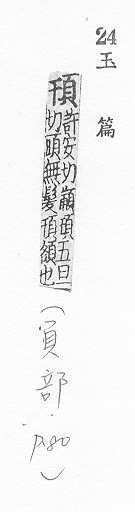 24
玉篇
頇
安切顢頇五旦
切頭無髮頇額也
(頁部. p.80)